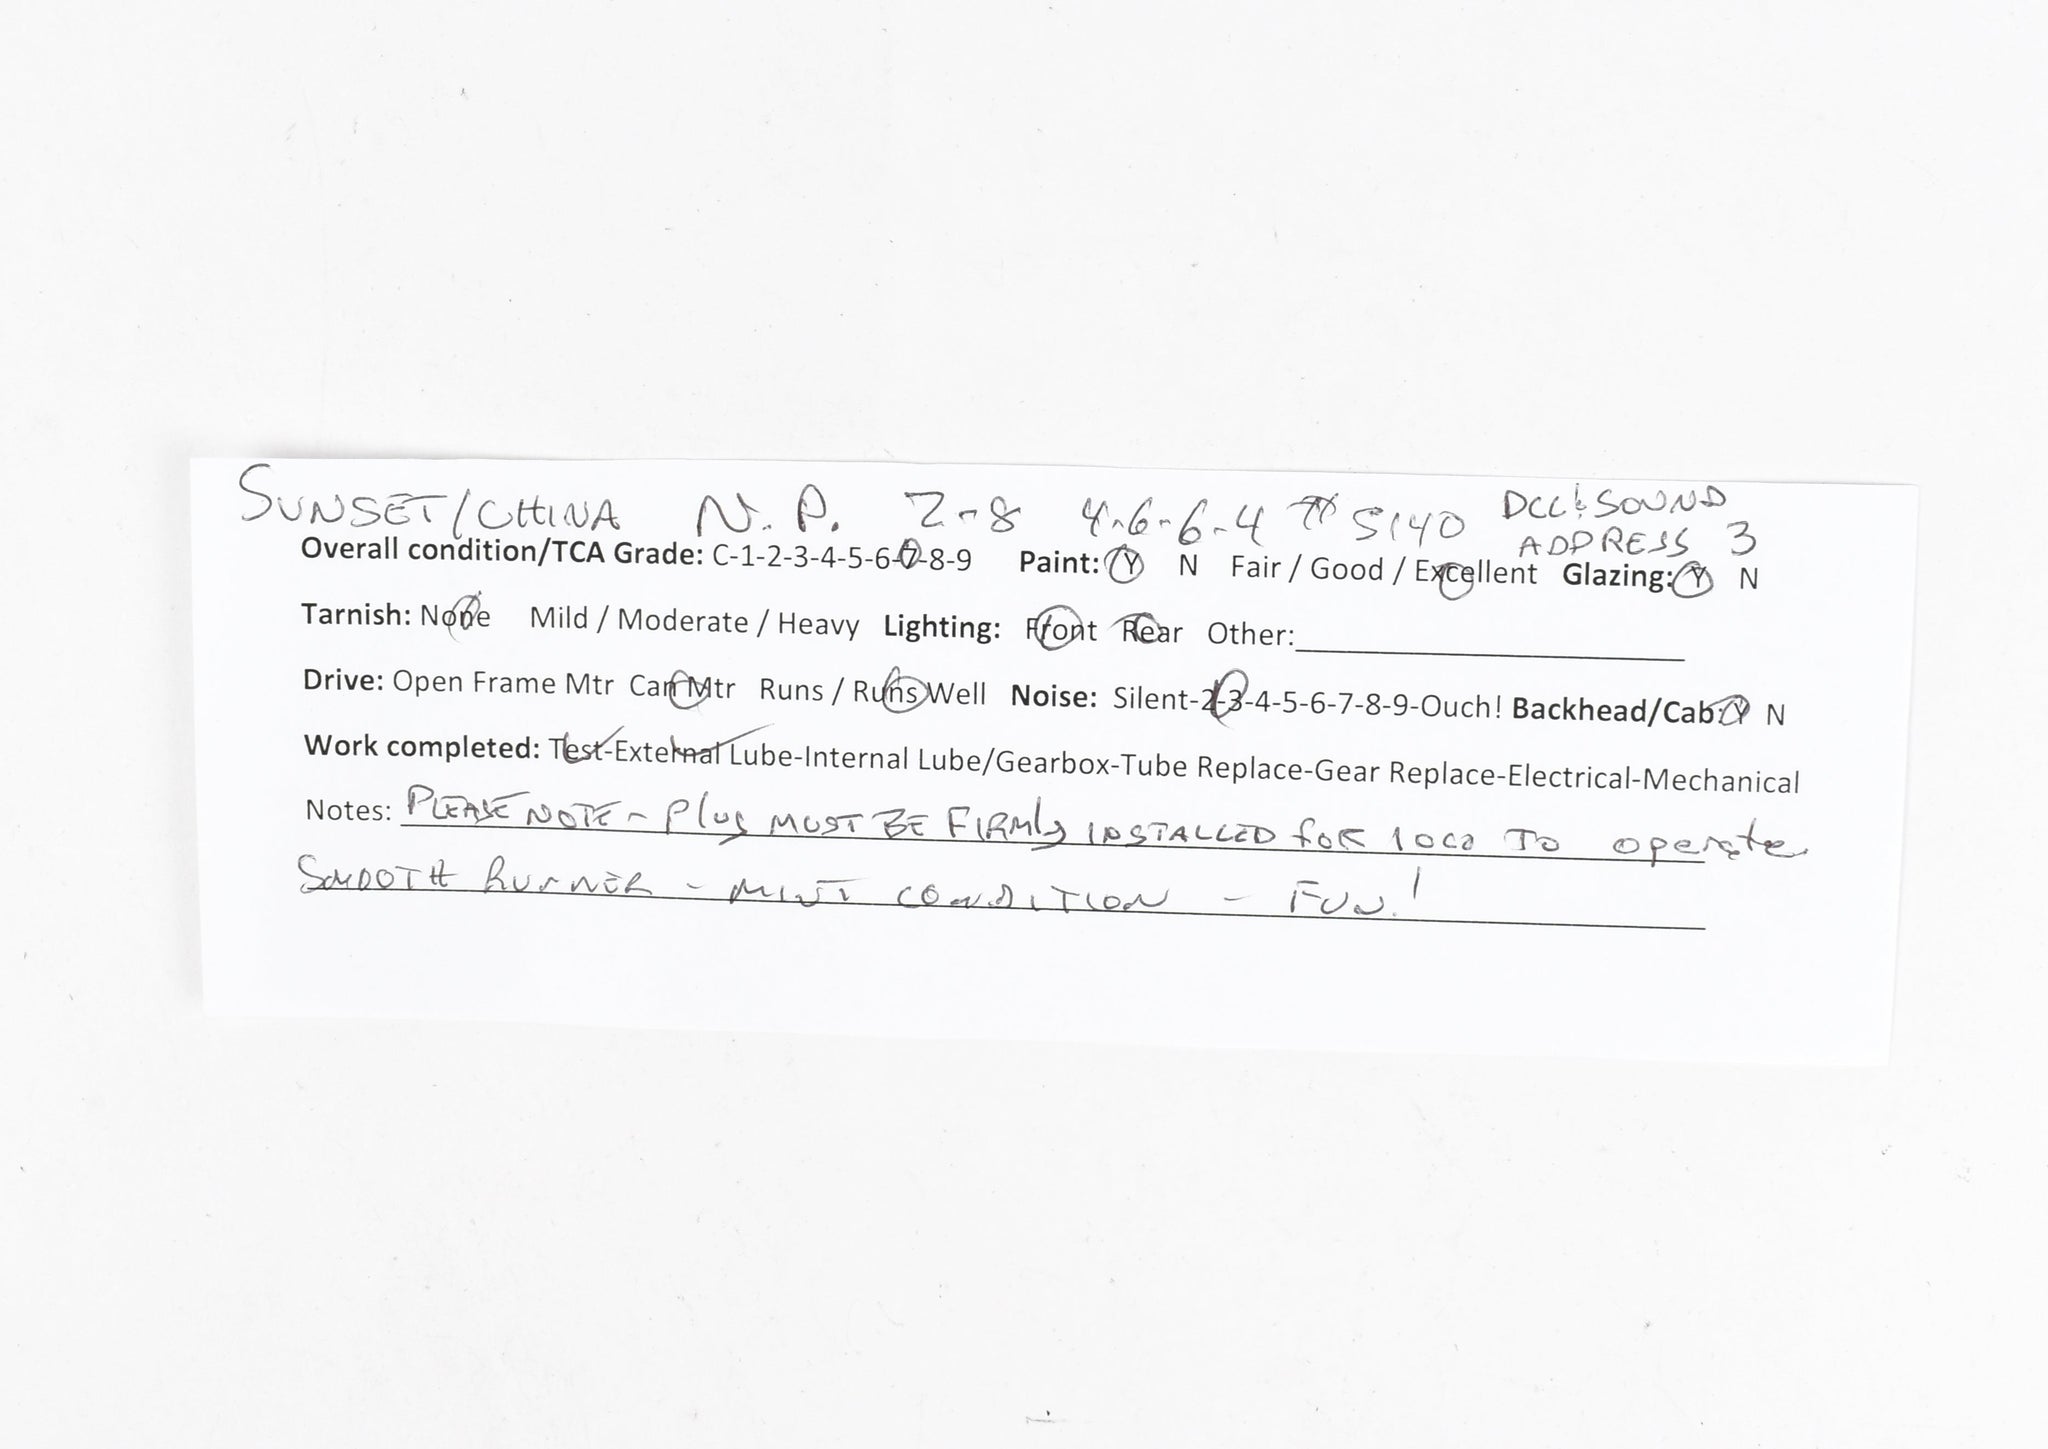 SUNSET/CHINA N.P. Z-8 4-6-6-4 # 5140 DCC & SOUND
ADDRESS 3
Overall condition/TCA Grade: C-1-2-3-4-5-6-7-8-9 Paint: Y N Fair / Good / Excellent Glazing: Y N
Tarnish: None Mild / Moderate / Heavy Lighting: Front Rear Other:
Drive: Open Frame Mtr Can Mtr Runs / Runs Well Noise: Silent-2-3-4-5-6-7-8-9-Ouch! Backhead/Cab: Y N
Work completed: Test-External Lube-Internal Lube/Gearbox-Tube Replace-Gear Replace-Electrical-Mechanical
Notes: PLEASE NOTE - Plug MUST BE FIRMly INSTALLED foR loco TO operate
SMOOTH RUNNER - MINT CONDITION - FUN!